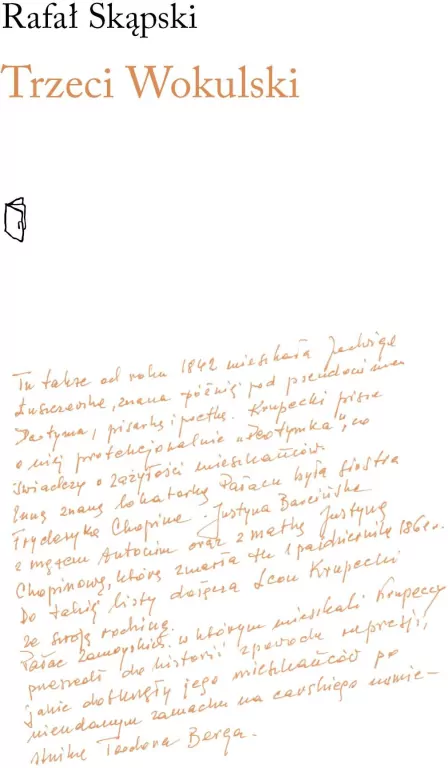 Rafał Skąpski
Trzeci Wokulski
Tu także od roku 1842 mieszkała Jadwiga
Łuszczewska, znana później pod pseudonimem
Deotyma, pisarka i poetka. Krupecki pisze
o niej protekcjonalnie „Deotymka", co
świadczy o zażyłości mieszkańców.
Inną znaną lokatorką Pałacu była siostra
Fryderyka Chopina - Justyna Barcińska
z mężem Antonim oraz z matką Justyną
Chopinową, która zmarła tu 1 października 1861 r.
Do takiej listy dołącza Leon Krupecki
ze swoją rodziną.
Pałac Zamoyskich, w którym mieszkali Krupeccy
przeszedł do historii z powodu represji,
jakie dotknęły jego mieszkańców po
nieudanym zamachu na carskiego namie-
stnika Teodora Berga.